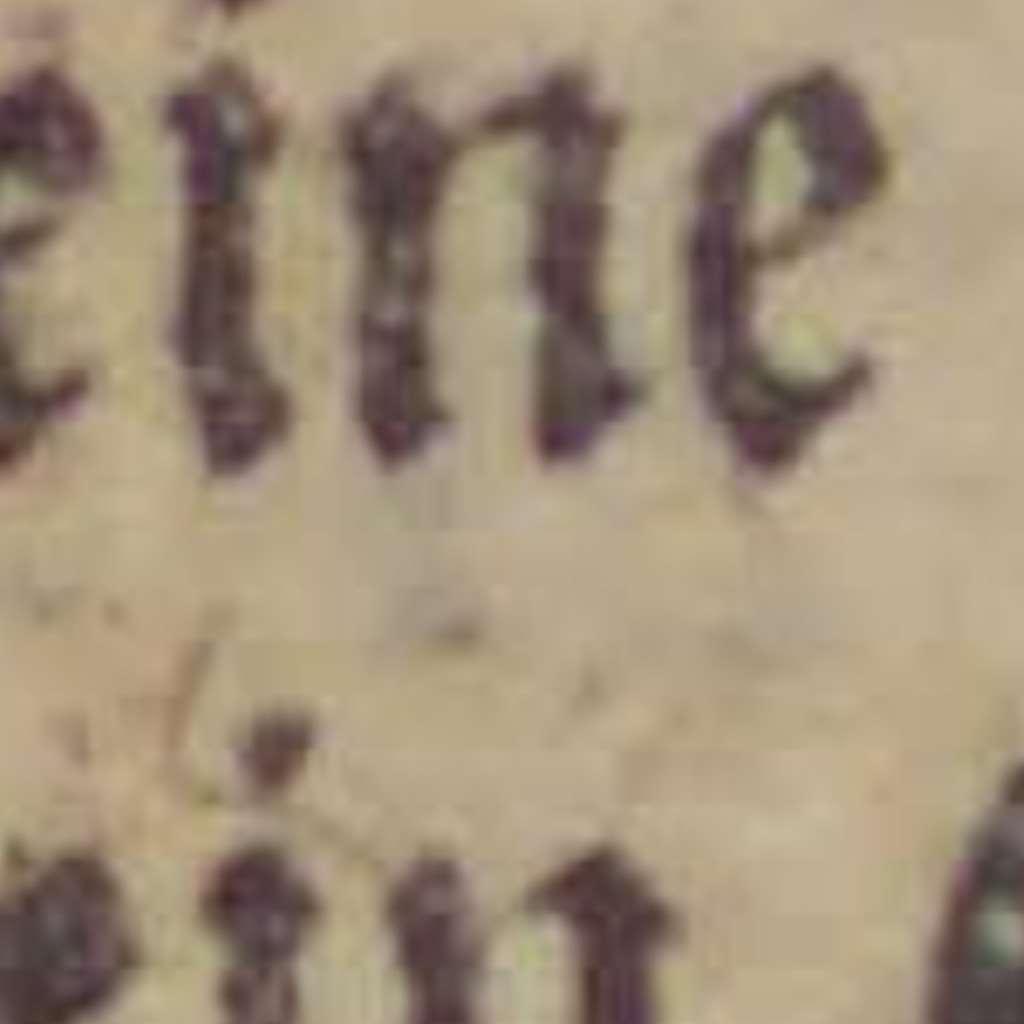 eine
ein